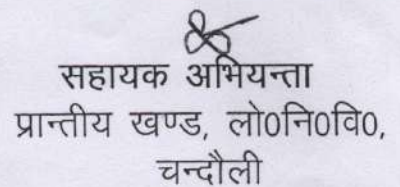 सहायक अभियन्ता
प्रान्तीय खण्ड, लो0नि0वि0,
चन्दौली